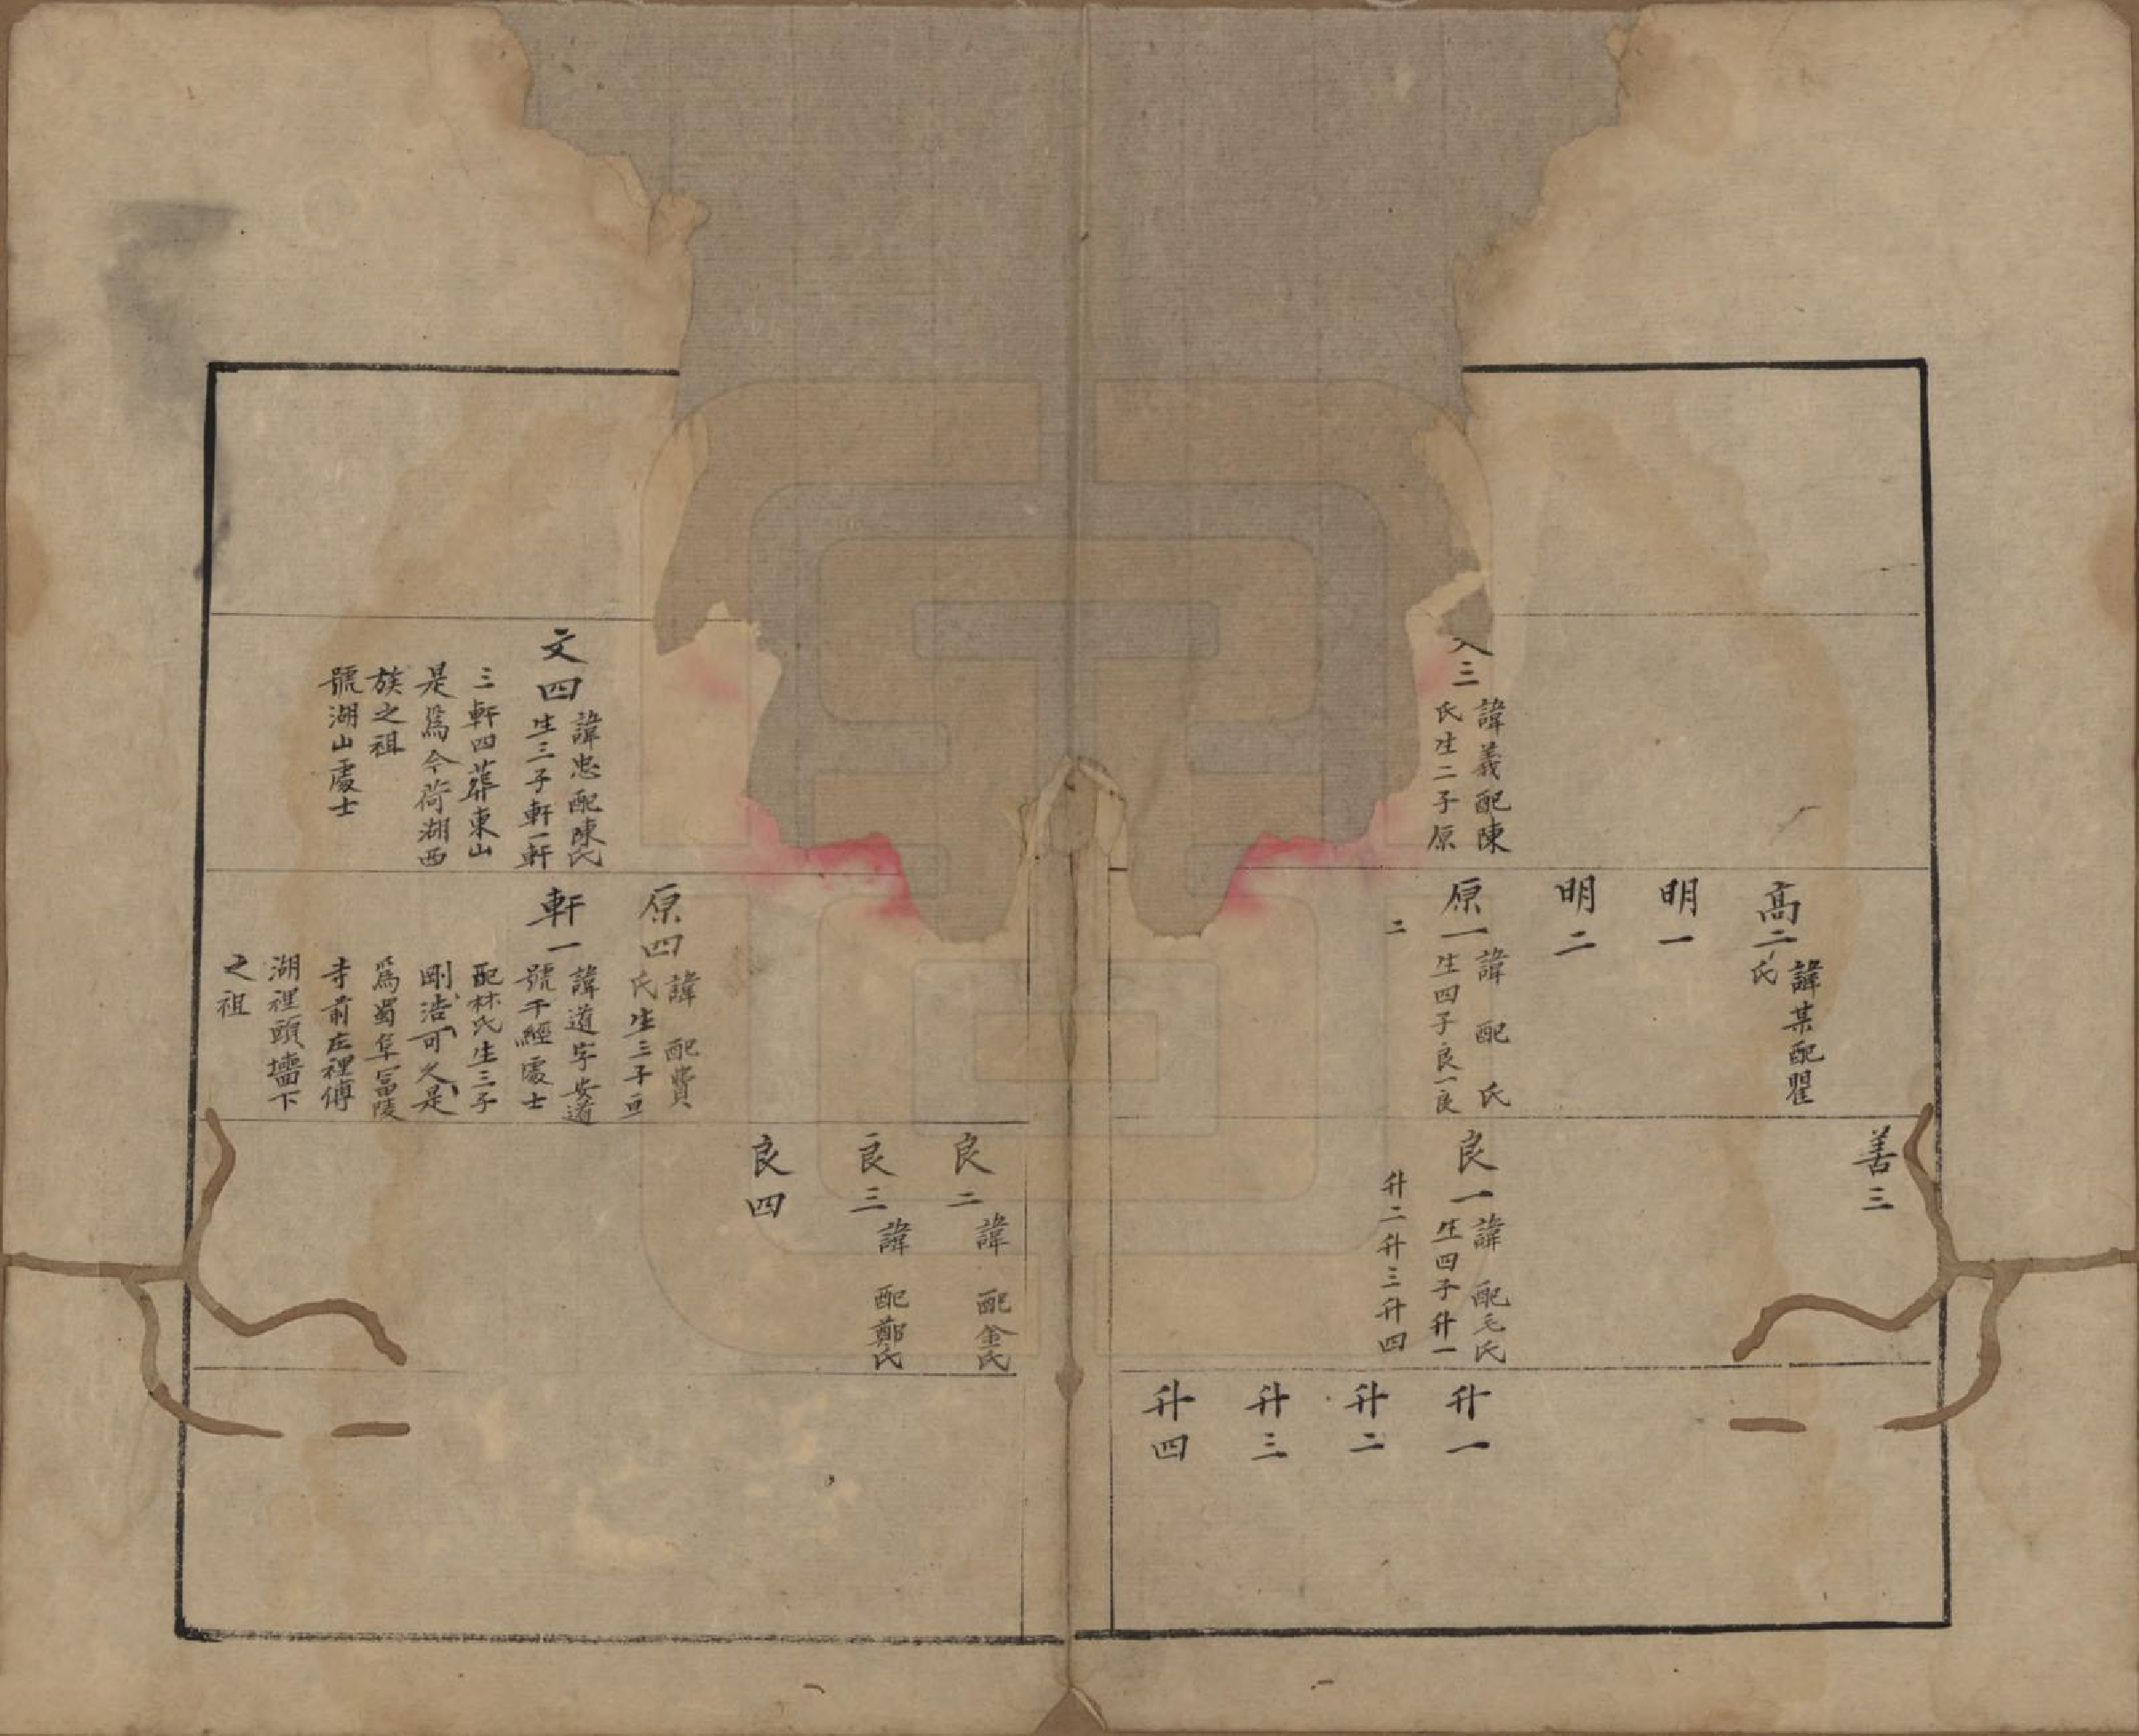 三
諱義配陳
氏生二子原
高二
諱某配翟
氏
明一
明二
原一
諱 配 氏
生四子良一良
二
善三
良一
諱 配毛氏
生四子升一
升二升三升四
升一
升二
升三
升四
文四
諱忠配陳氏
生三子軒一軒
三軒四葬東山
是爲今荷湖西
族之祖
號湖山處士
原四
諱 配費
氏生三子亘
軒一
諱道字安道
號千經處士
配林氏生三子
剛浩可久是
爲蜀阜富陵
寺前庄裡傅
湖裡頭墻下
之祖
良二
諱 配金氏
良三
諱 配鄭氏
良四